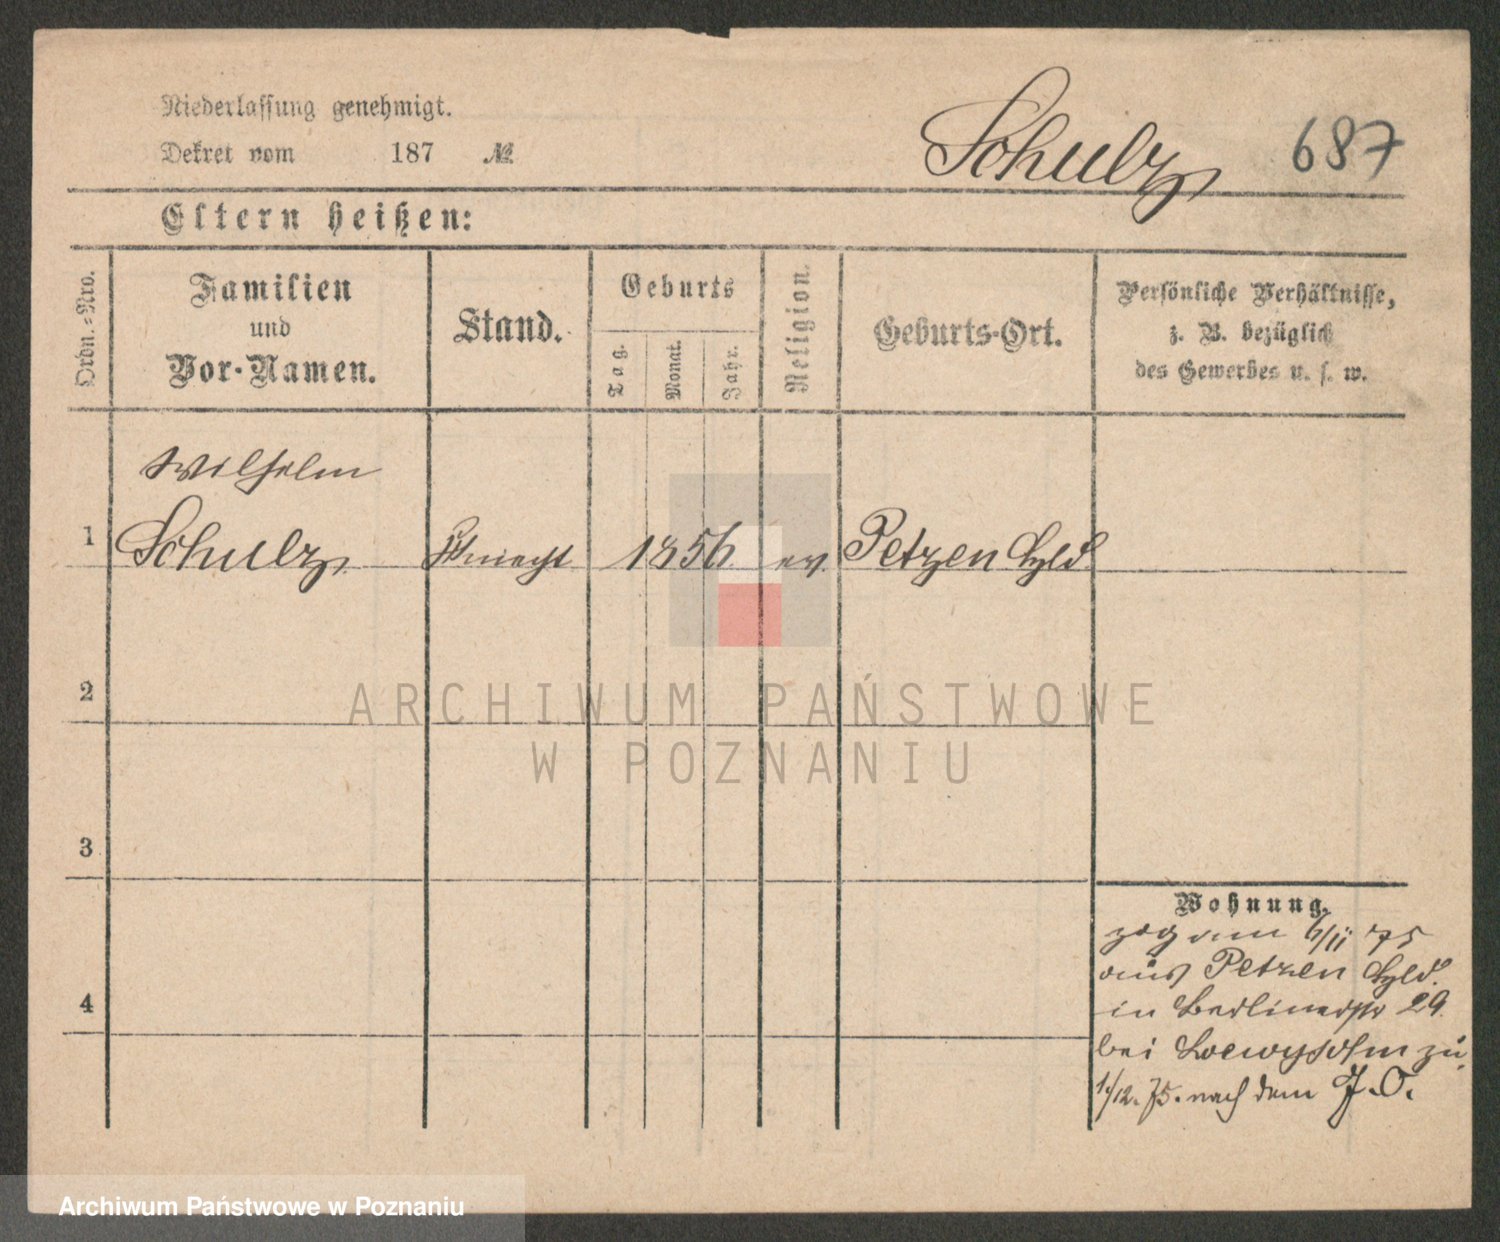 Niederlassung genehmigt.
Schulz 687
Dekret vom 187 №
Eltern heißen:
Ordn.=Nro.
Familien
und
Vor-Namen.
Stand.
Geburts
Tag.
Monat.
Jahr.
Religion.
Geburts-Ort.
Persönliche Verhältnisse,
z. B. bezüglich
des Gewerbes u. s. w.
Wilhelm
1 Schulz 1856 ev. Petzen
2
ARCHIWUM PAŃSTWOWE
W POZNANIU
3
Wohnung.
zog am 6/11 75
aus Petzen
4
in Berlinerstr 29
bei Loewysohn zu
1/12. 75. nach dem J. O.
Archiwum Państwowe w Poznaniu